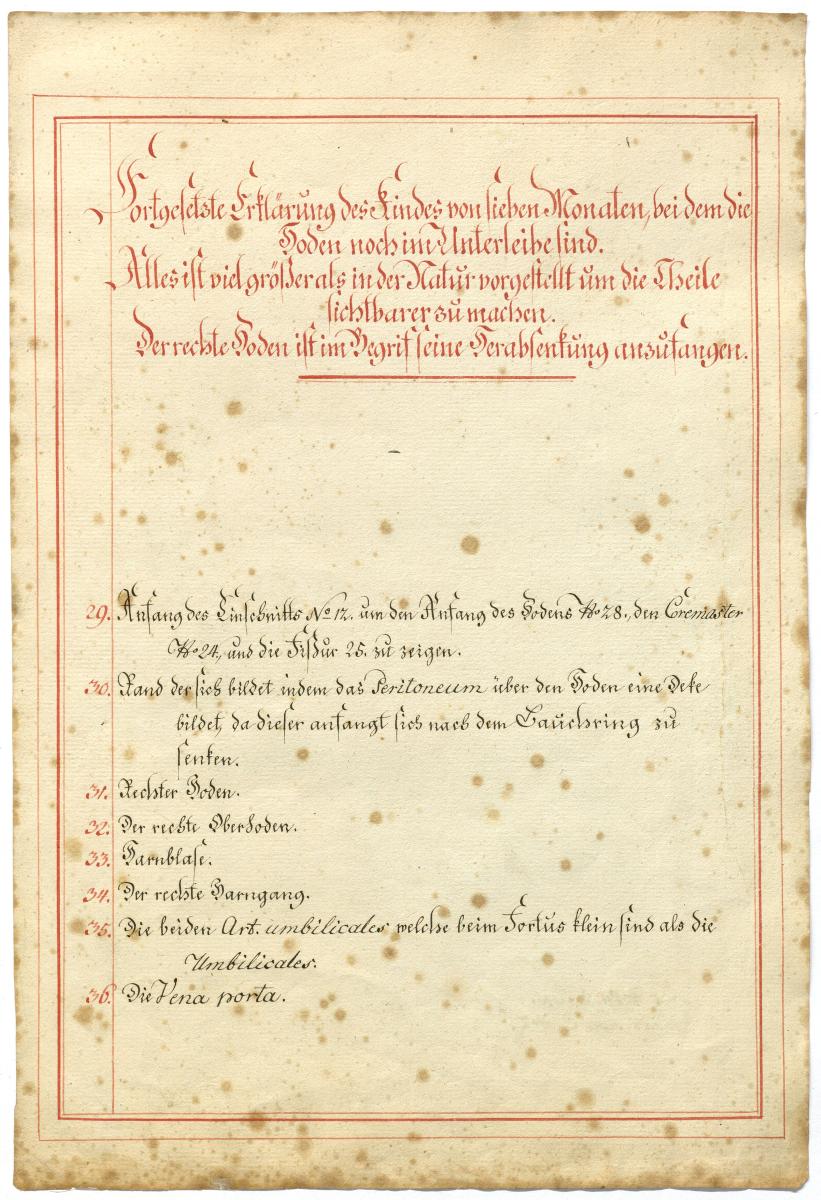 Fortgesetzte Erklärung des Kindes von sieben Monaten, bei dem die
Hoden noch im Unterleibe sind.
Alles ist viel größer als in der Natur vorgestellt um die Theile
sichtbarer zu machen.
Der rechte Hoden ist im Begrif seine Herabsenkung anzufangen.
29. Anfang des Einschnitts No 12. um den Anfang des Hodens No 28., den Coremaster
No 24., und die Fißur 25. zu zeigen.
30. Rand der sich bildet indem das Peritoneum über den Hoden eine Deke
bildet, da dieser anfangt sich nach dem Bauchring zu
senken.
31. Rechter Hoden.
32. Der rechte Oberhoden.
33. Harnblase.
34. Der rechte Harngang.
35. Die beiden Art. umbilicales welche beim Foetus klein sind als die
Umbilicales.
36. Die Vena porta.